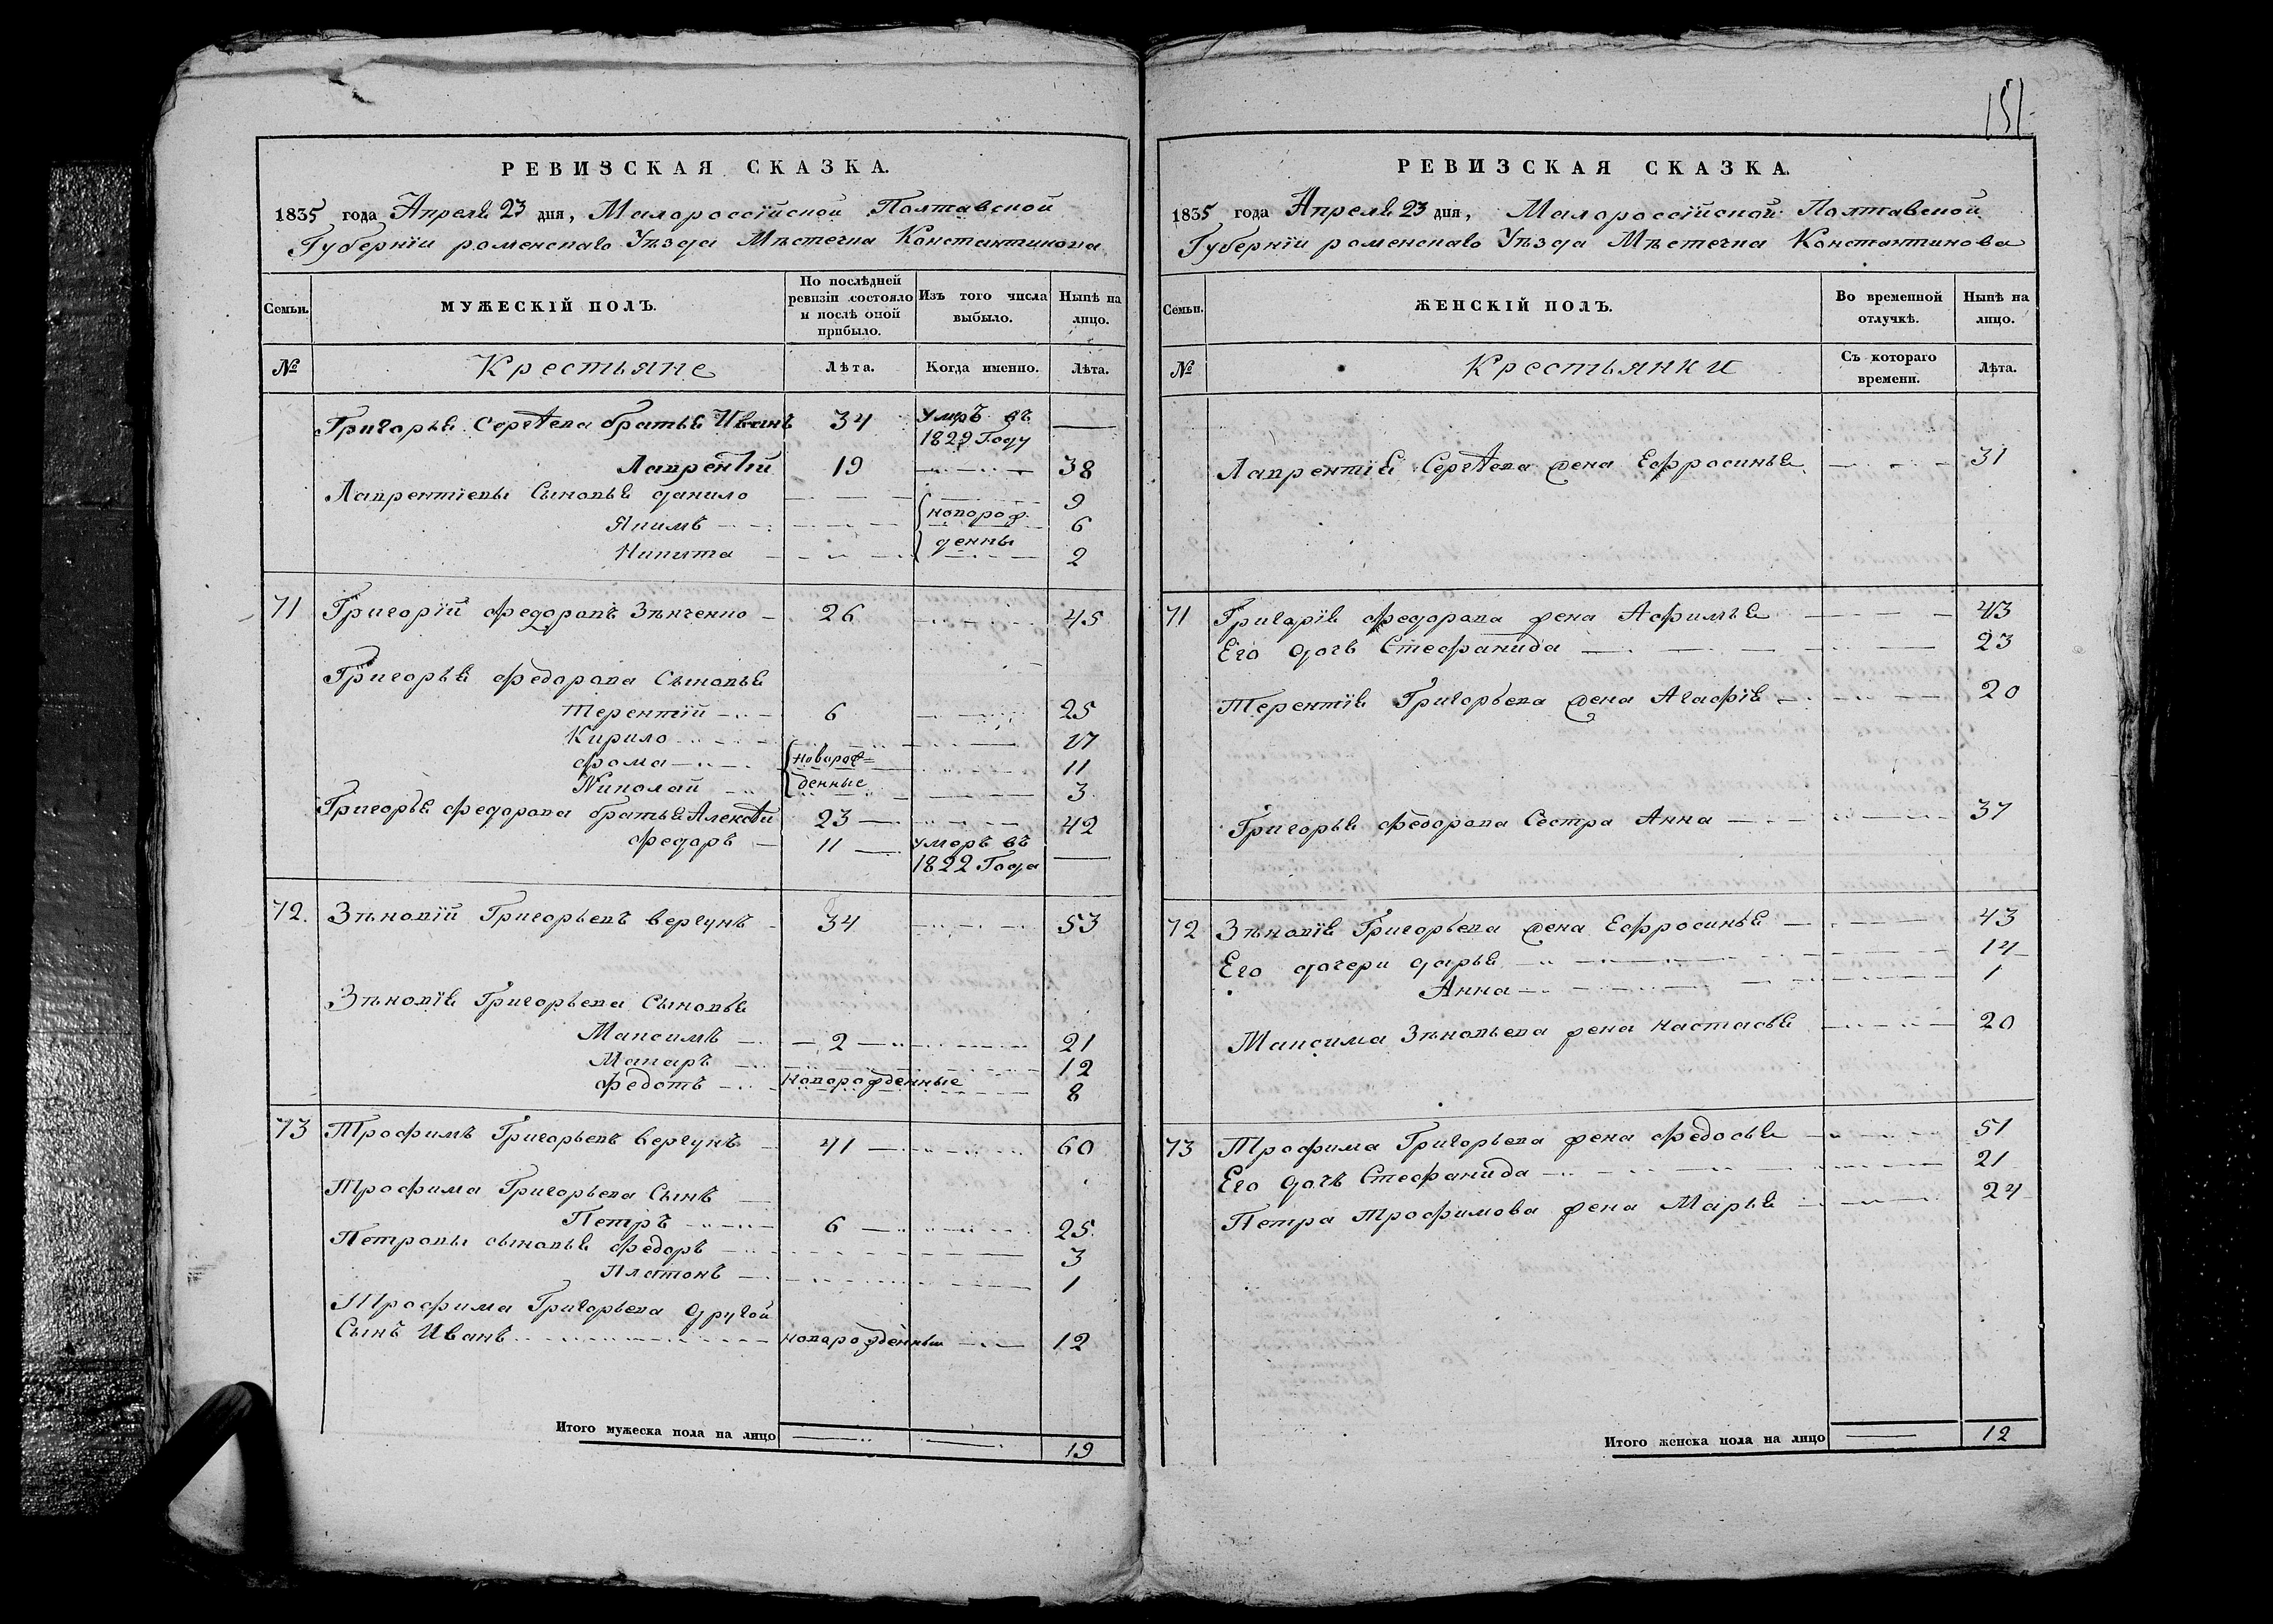 151
РЕВИЗСКАЯ СКАЗКА.
1835 года Апреля 23 дня, Малороссійской Полтавской
Губерніи роменскаго Уѣзда Мѣстечка Константинова
Семьи.
МУЖЕСКІЙ ПОЛЪ.
По послѣдней ревизіи состояло и послѣ оной прибыло.
Изъ того числа выбыло.
Нынѣ на лицо.
№
Крестьяне
Лѣта.
Когда именно.
Лѣта.
Григорья Сергѣева братья Иванъ 34 умеръ въ 1829 Году —
Лаврентій 19 38
Лаврентіевы Сыновья данило 9
Якимъ новорож 6
Никита денны 2
71 Григорій Федоровъ Зѣнченко 26 45
Григорья Федорова Сыновья
Терентій 6 25
Кирило 17
Фома новорож= 11
Николай денные 3
Григорья Федорова братья Алексѣй 23 42
Федоръ 11 умеръ въ 1822 Года —
72. Зѣновій Григорьевъ Вергунъ 34 53
Зѣновія Григорьева Сыновья
Максимъ 2 21
Макаръ 12
Федотъ новорожденные 8
73 Трофимъ Григорьевъ Вергунъ 41 60
Трофима Григорьева Сынъ
Петръ 6 25
Петровы сыновья Федоръ 3
Платонъ 1
Трофима Григорьева другой
Сынъ Иванъ новорожденный 12
Итого мужеска пола на лицо 19
РЕВИЗСКАЯ СКАЗКА.
1835 года Апреля 23 дня, Малороссійской Полтавской
Губерніи роменскаго Уѣзда Мѣстечка Константинова
Семьи.
ЖЕНСКІЙ ПОЛЪ.
Во временной отлучкѣ.
Нынѣ на лицо.
№
Крестьянки
Съ котораго времени.
Лѣта.
Лаврентія Сергѣева жена Ефросинья 31
71 Григорія Федорова жена Афимья 43
Его дочь Стефанида 23
Терентія Григорьева жена Агафія 20
Григорья Федорова Сестра Анна 37
72 Зѣновія Григорьева жена Ефросинья 43
Его дочери дарья 14
Анна 1
Максима Зѣновьева жена настасья 20
73 Трофима Григорьева жена Федосья 51
Его дочь Стефанида 21
Петра Трофимова жена Марья 24
Итого женска пола на лицо 12